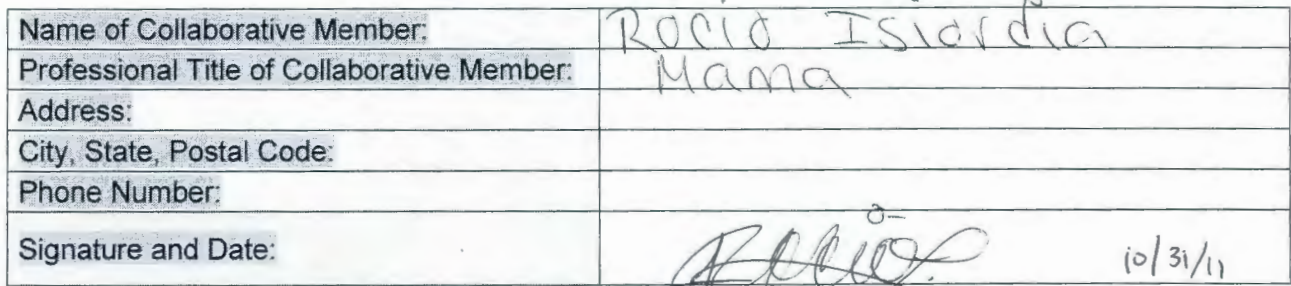 Name of Collaborative Member: Rocio Isiordia
Professional Title of Collaborative Member: Mama
Address:
City, State, Postal Code:
Phone Number:
Signature and Date: Rocio 10/31/11